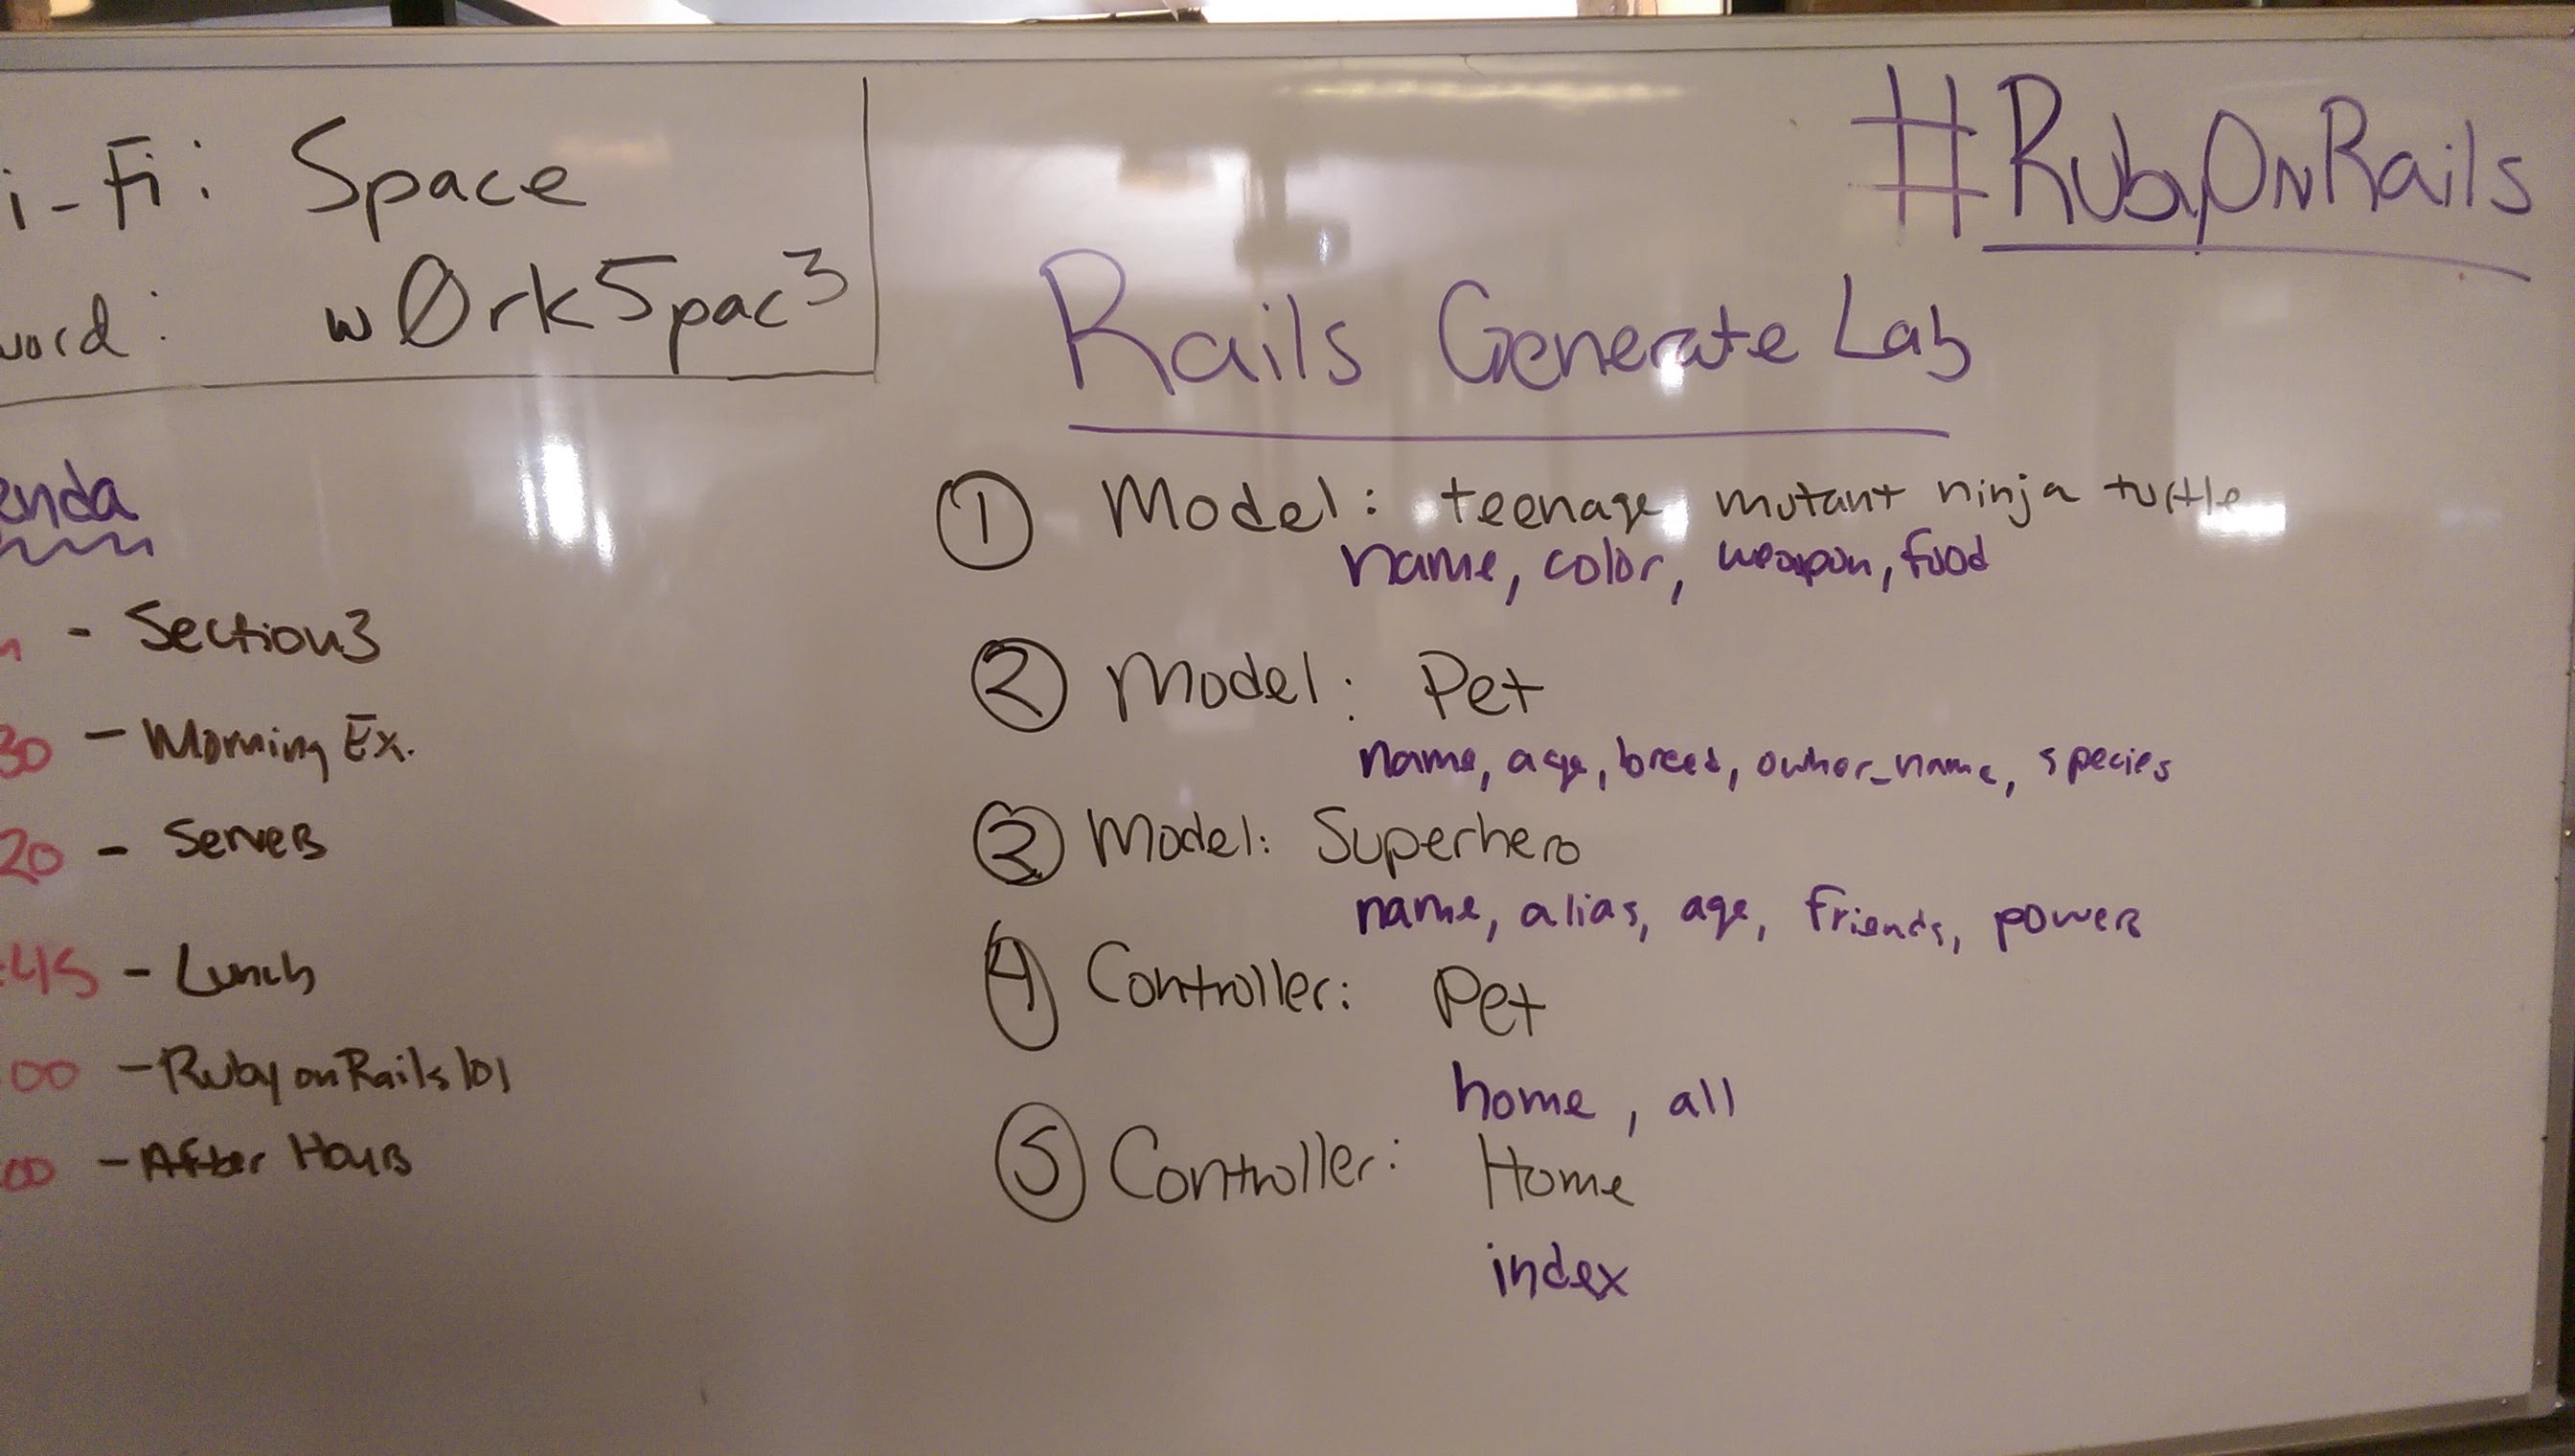 i-Fi: Space
word: w0rk5pac3
enda
- Section3
30 - Morning Ex.
20 - Servers
:45 - Lunch
00 - RubyonRails101
00 - After Hours
#RubyOnRails
Rails Generate Lab
1 Model: teenage mutant ninja turtle
name, color, weapon, food
2 Model: Pet
name, age, breed, owner_name, species
3 Model: Superhero
name, alias, age, friends, powers
4 Controller: Pet
home, all
5 Controller: Home
index